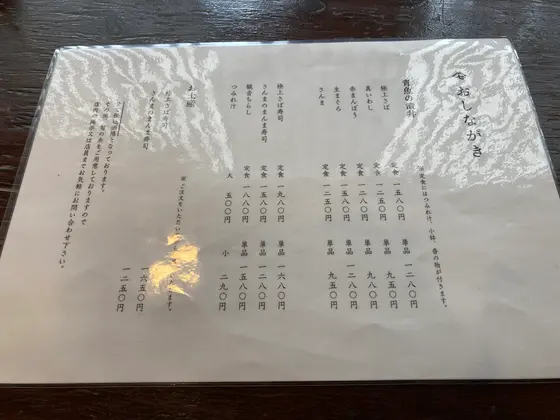 おしながき
※定食にはつみれ汁、小鉢、香の物が付きます。
青魚の
極上さば 定食 一五八〇円 単品 一二八〇円
真いわし 定食 一二五〇円 単品 九五〇円
赤まんぼう 定食 一二八〇円 単品 九八〇円
生まぐろ 定食 一五八〇円 単品 一二八〇円
さんま 定食 一二五〇円 単品 九五〇円
極上さば寿司 定食 一九八〇円 単品 一六八〇円
さんまのまんま寿司 定食 一五八〇円 単品 一二八〇円
観音ちらし 定食 一八八〇円 単品 一五八〇円
つみれ汁 大 五〇〇円 小 二九〇円
お土産
※ご注文をいただい ます。
極上さば寿司 一六五〇円
さんまのまんま寿司 一二五〇円
なっております。
その他、旬の魚もご用意しておりますので
店内の掲示又は店員までお気軽にお問い合わせ下さい。